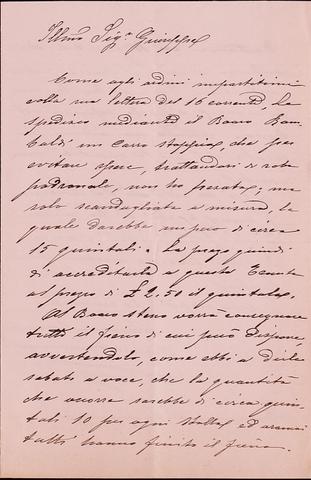 Illmo Sigr Giuseppe
Come agli ordini impartitimi
colla sua lettera del 16 corrente Le
spedisco mediante il Bovaro
un Carro stoppia, che per
evitare spese, trattandosi di roba
padronale, non ho pesata; ma
solo scandagliata a misura, la
quale darebbe un peso di circa
15 quintali. La prego quindi
di accreditarla a questa Tenuta
al prezzo di £ 2,50 il quintale.
Al Bovaro stesso vorrà consegnare
tutto il fieno di cui può disporre,
avvertendolo, come ebbi a dirle
sabato a voce, che la quantità
che occorre sarebbe di circa quin-
tali 10 per ogni stalla ed oramai
tutti hanno finito il fieno.